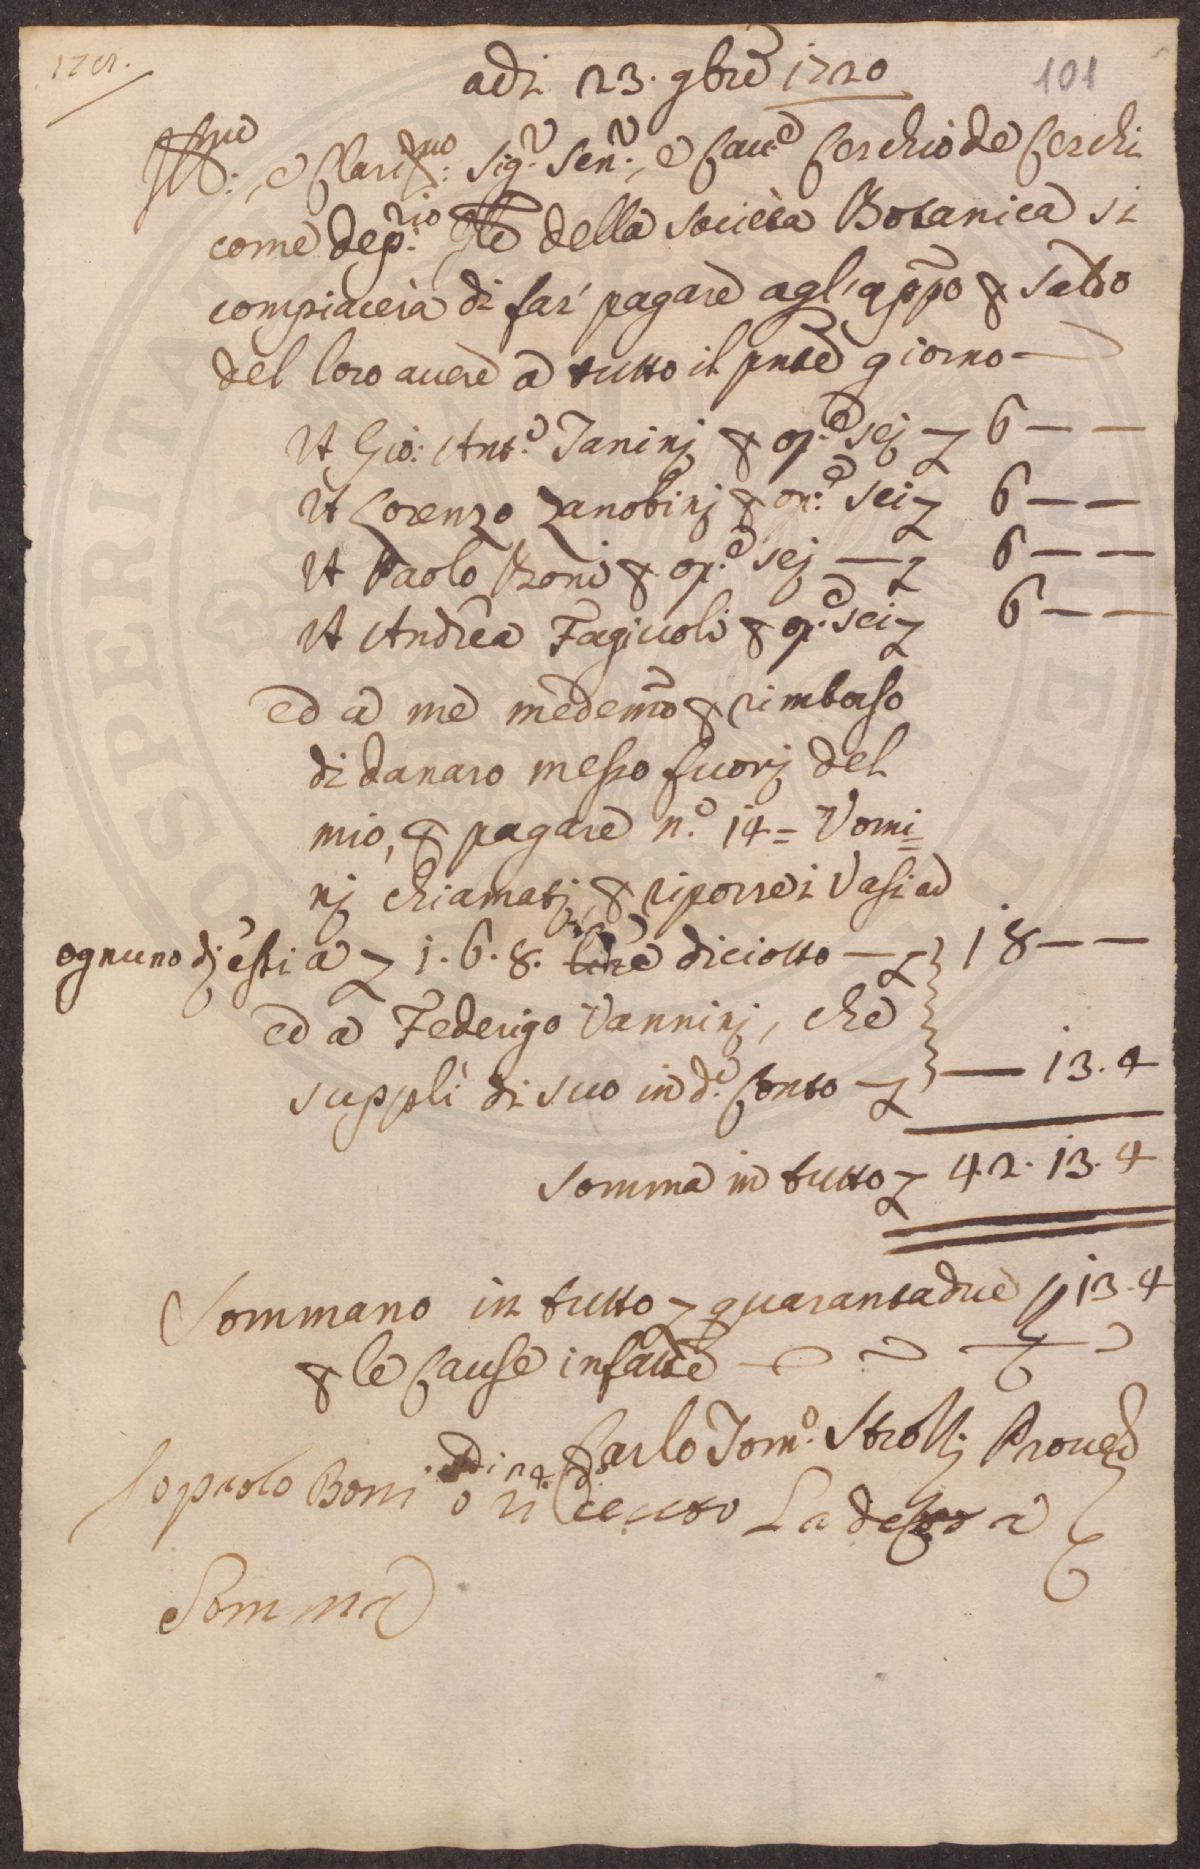 101
adi 23. gbre 1720
Ill.mo, e Clariss.mo: Sig.r Sen.r, e Cau.e Cerchio de Cerchi
come dep.rio Gle della Società Botanica si
compiacerà di far pagare agl'appo p saldo
del loro avere a tutto il pnte giorno —
A Gio: Ant.o Janinj p op.e sej — 6 — —
A Lorenzo Zanobinj p op.e sei 6 — —
A Paolo Boni p op.e sej — 6 — —
A Andrea Fagiuoli p op.e sei 6 — —
ed a me medemo p rimborso
di danaro messo fuorj del
mio, p pagare n.o 14 = Uomi=
nj chiamatj, p riporre i Vasi ad
ognuno dj essi a 1. 6. 8. lire diciotto — 18 — —
ed a Federigo Vanninj, che
supplì di suo in d.o Conto — 13. 4
Somma in tutto 42. 13. 4
Sommano in tutto quarantadue 13. 4
p le Cause infatte
Carlo Tom.o Strozzj Proved
Io paolo Boni o riceuto La detta
Somma